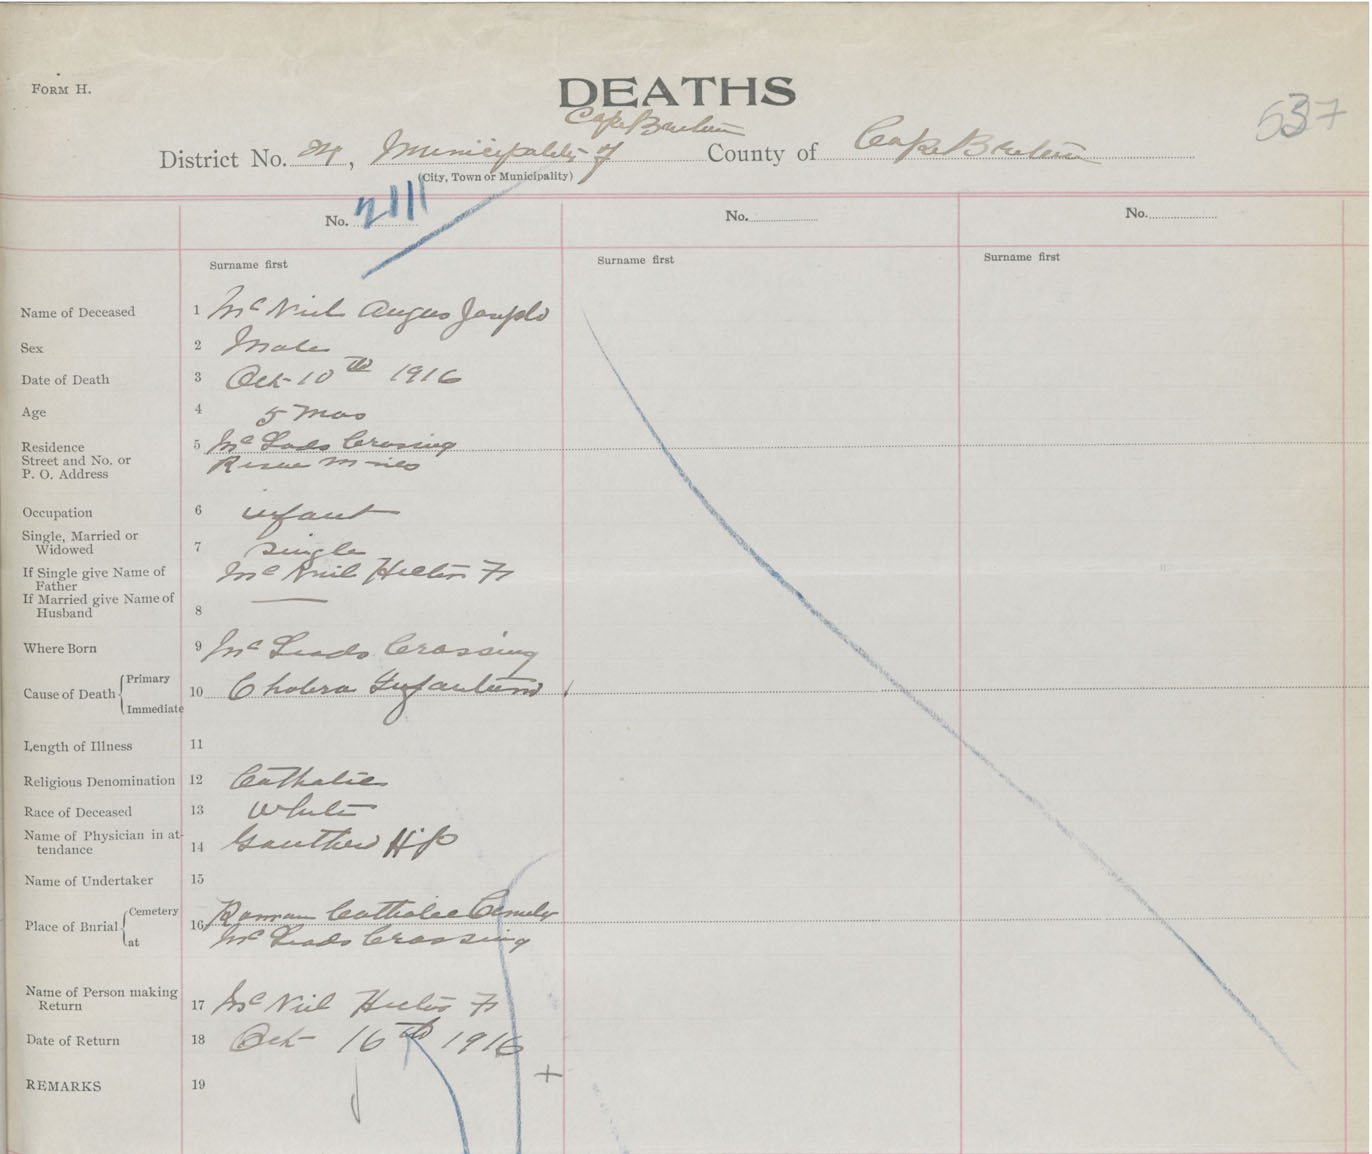 FORM H.
DEATHS
537
Cape Breton
District No. 24, Municipality of County of Cape Breton
(City, Town or Municipality)
No. 2111 No. No.
Surname first Surname first Surname first
Name of Deceased 1 McNeil Angus Joseph
Sex 2 Male
Date of Death 3 Oct 10th 1916
Age 4 5 Mos
Residence 5 McLeods Crossing
Street and No. or Reserve Mines
P. O. Address
Occupation 6 infant
Single, Married or
Widowed 7 Single
If Single give Name of McNeil Hector Fr
Father
If Married give Name of
Husband 8 —
Where Born 9 McLeods Crossing
Cause of Death Primary 10 Cholera Infantum
Immediate
Length of Illness 11
Religious Denomination 12 Catholic
Race of Deceased 13 White
Name of Physician in at-
tendance 14 Gouthro
Name of Undertaker 15
Place of Burial Cemetery 16 Roman Catholic Cemetery
at McLeods Crossing
Name of Person making
Return 17 McNeil Hector Fr
Date of Return 18 Oct 16th 1916
REMARKS 19